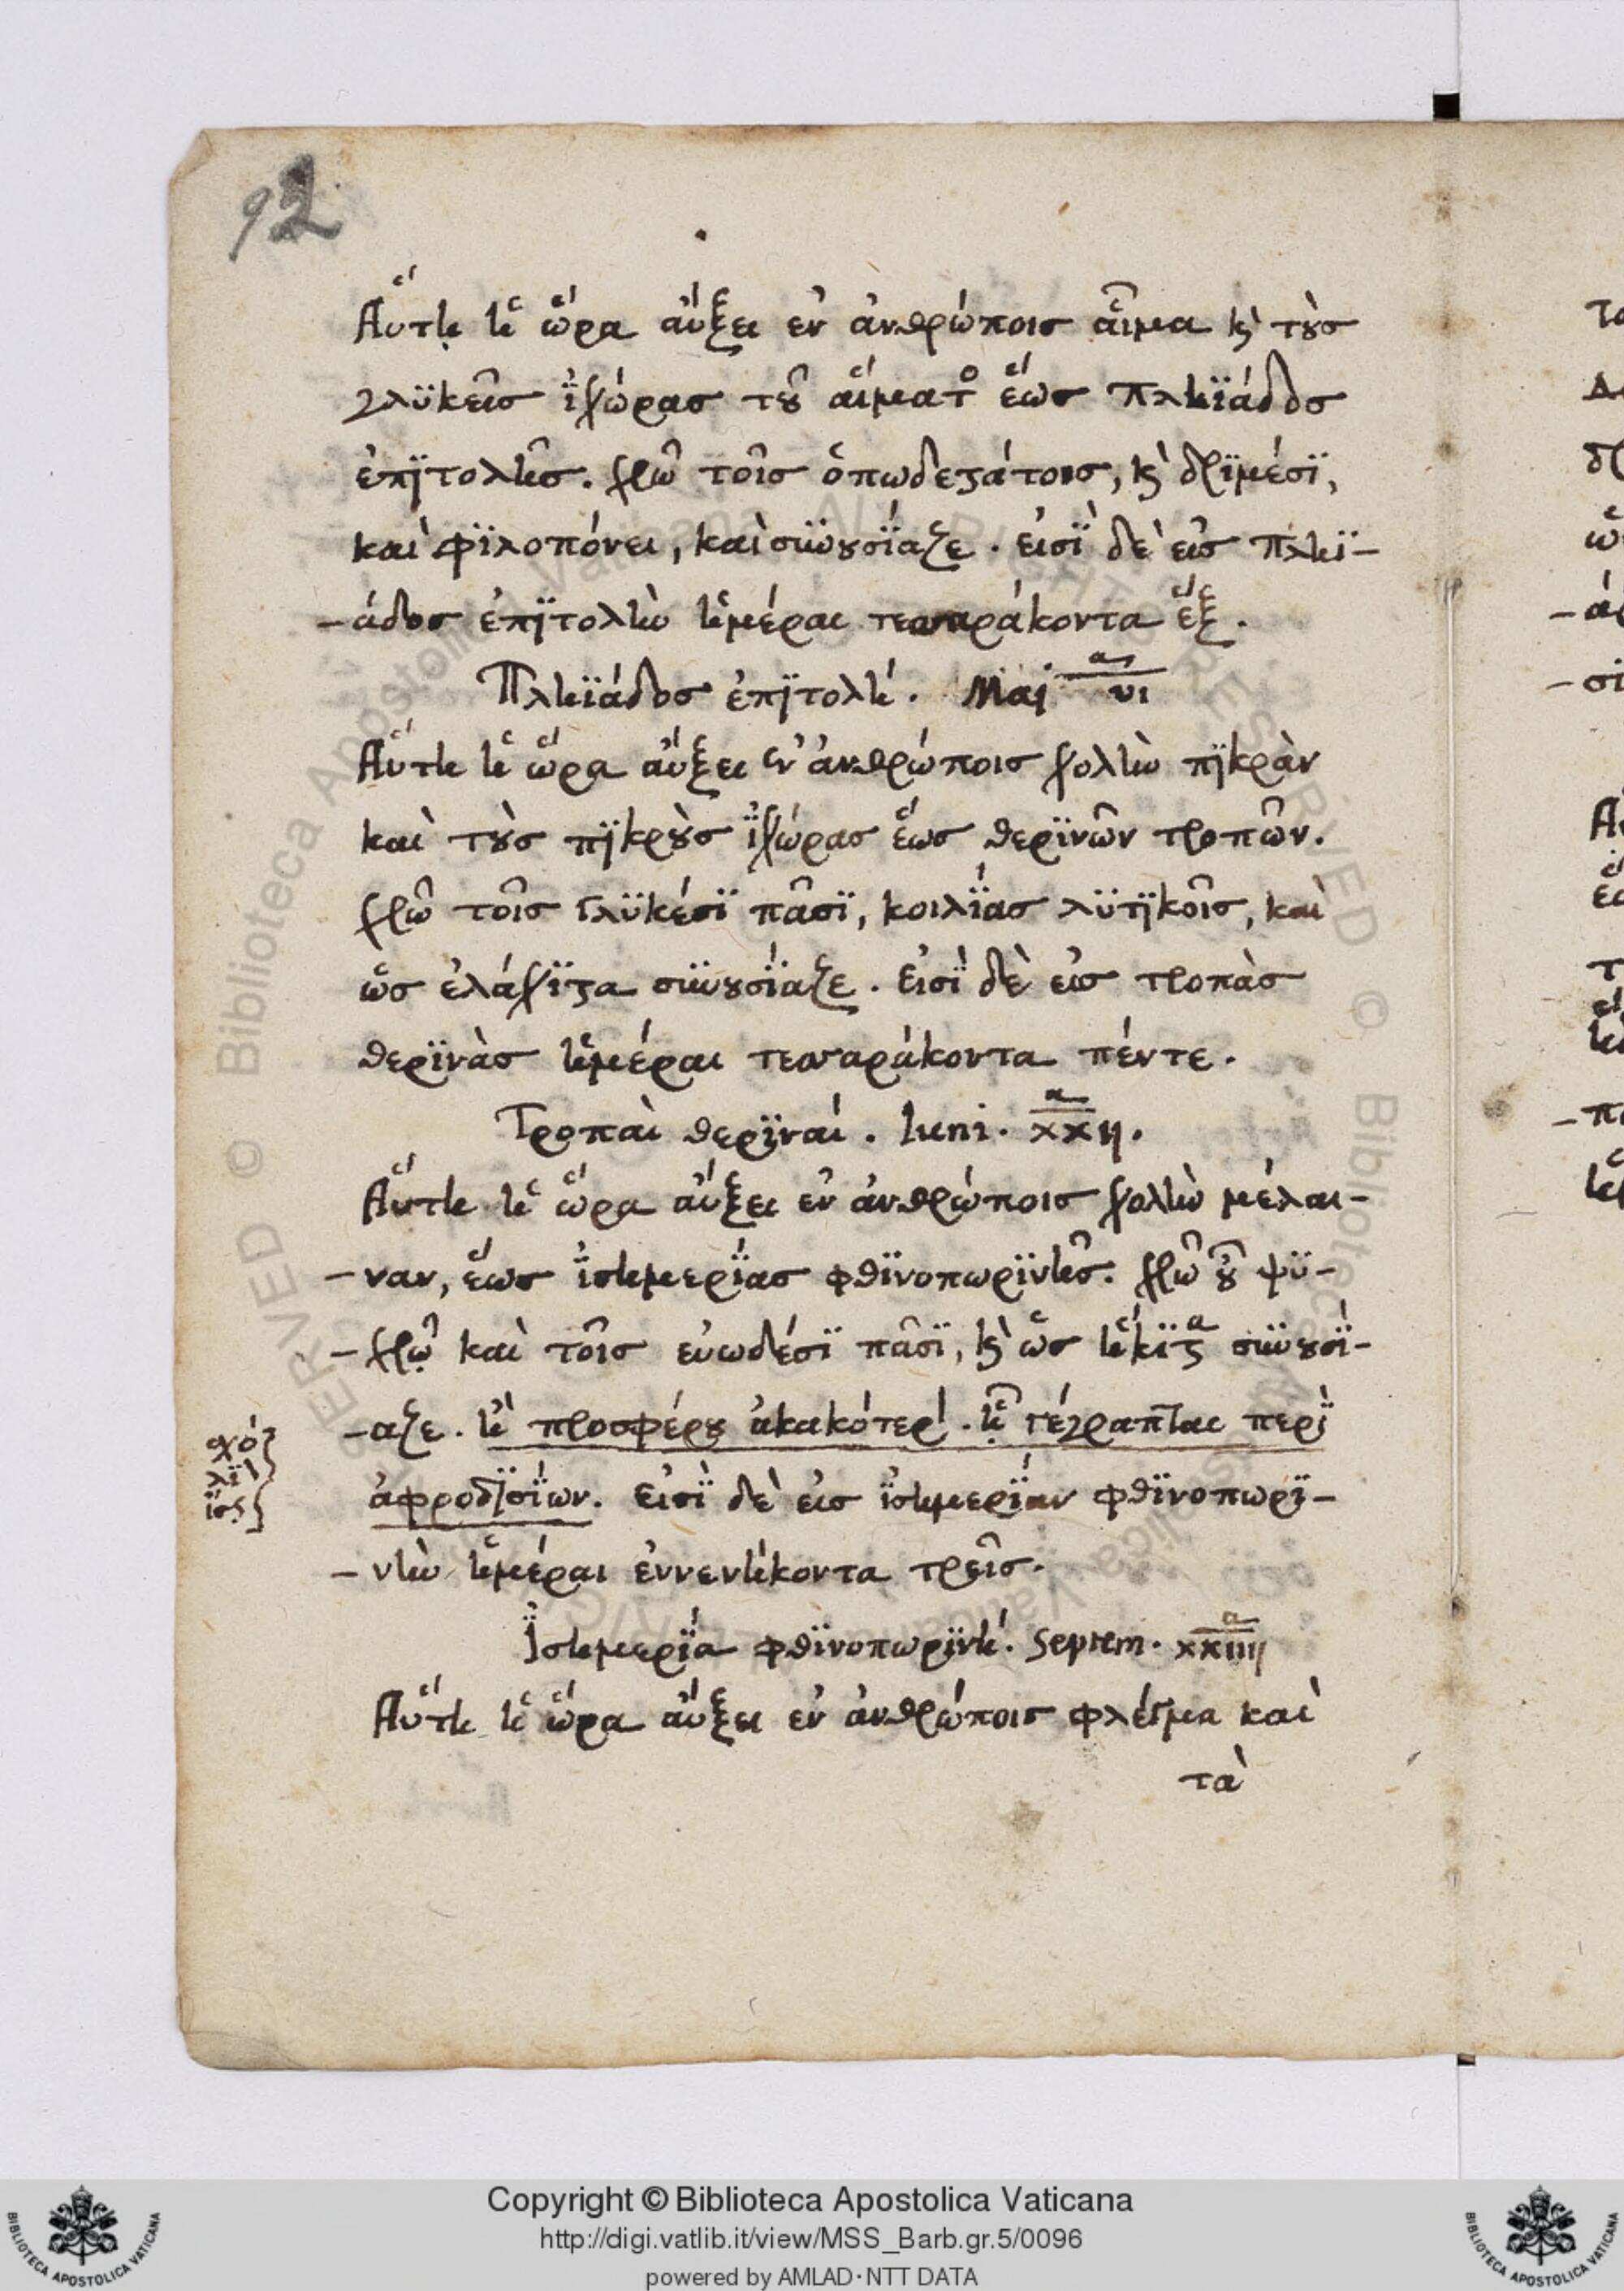 92
Αὕτη ἡ ὥρα αὔξει ἐν ἀνθρώποις αἷμα κ̀ τοὺς
γλϋκεῖς ἰχώρας τοῦ αἵματος ἕως Πληϊάδος
ἐπϊτολῆς. χρῶ τοῖς ὀπωδεστάτοις, κ̀ δρϊμέσϊ,
καὶ φϊλοπόνει, καὶ σϋνουσϊάζε. εἰσῒ δὲ εἰς Πληϊ-
-άδος ἐπϊτολὴν ἡμέραι τεσσαράκοντα ἕξ.
Πληϊάδος ἐπϊτολή. Maj vi
Αὕτη ἡ ὥρα αὔξει ἐν ἀνθρώποις χολὴν πϊκρὰν
καὶ τοὺς πϊκροὺς ἰχώρας ἕως θερϊνῶν τροπῶν.
χρῶ τοῖς γλϋκέσϊ πᾶσϊ, κοιλΐας λϋτϊκοῖς, καὶ
ὡς ἐλάχϊστα σϋνουσΐαζε. εἰσῒ δὲ εἰς τροπὰς
θερϊνὰς ἡμέραι τεσσαράκοντα πέντε.
Τροπαὶ θερϊναί. Iuni. xxij.
Αὕτη ἡ ὥρα αὔξει ἐν ἀνθρώποις χολὴν μέλαι-
-ναν, ἕως ἰσημερΐας φθϊνοπωρϊνῆς. χρῶ οὖ ψϋ-
-χρῷ καὶ τοῖς εὐωδέσϊ πᾶσϊ, κ̀ ὡς ἥκϊστα σϋνουσϊ-
-αζε. ἢ προσφέρου ἀκακότερ'. ᾗ γέγραπται περῒ
ἀφροδϊσΐων. εἰσῒ δὲ εἰς ἰσημερΐαν φθϊνοπωρϊ-
-νὴν ἡμέραι ἐννενήκοντα τρεῖς.
Ἰσημερΐα φθϊνοπωρϊνή. Septem. xxiiij
Αὕτη ἡ ὥρα αὔξει ἐν ἀνθρώποις φλέγμα καὶ
τὰ
Copyright © Biblioteca Apostolica Vaticana
http://digi.vatlib.it/view/MSS_Barb.gr.5/0096
powered by AMLAD・NTT DATA